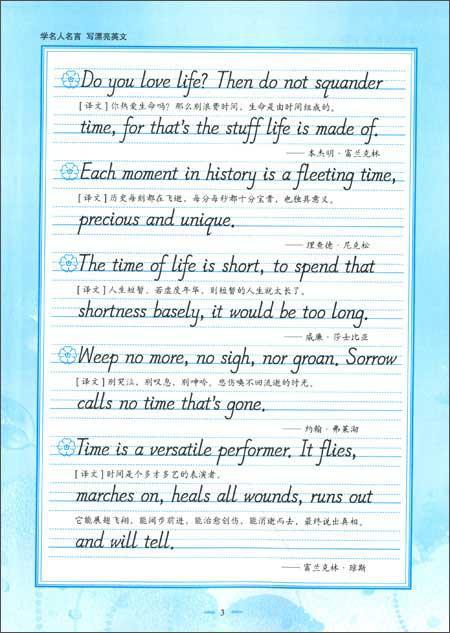 学名人名言 写漂亮英文
Do you love life? Then do not squander
[译文]你热爱生命吗？那么别浪费时间，生命是由时间组成的。
time, for that's the stuff life is made of.
——本杰明·富兰克林
Each moment in history is a fleeting time,
[译文]历史每刻都在飞逝，每分每秒都十分宝贵，也独具意义。
precious and unique.
——理查德·尼克松
The time of life is short, to spend that
[译文]人生短暂，若虚度年华，则短暂的人生就太长了。
shortness basely, it would be too long.
——威廉·莎士比亚
Weep no more, no sigh, nor groan. Sorrow
[译文]别哭泣，别叹息，别呻吟，悲伤唤不回流逝的时光。
calls no time that's gone.
——约翰·弗莱彻
Time is a versatile performer. It flies,
[译文]时间是个多才多艺的表演者。
marches on, heals all wounds, runs out
它能展翅飞翔，能阔步前进，能治愈创伤，能消逝而去，最终说出真相。
and will tell.
——富兰克林·琼斯
3